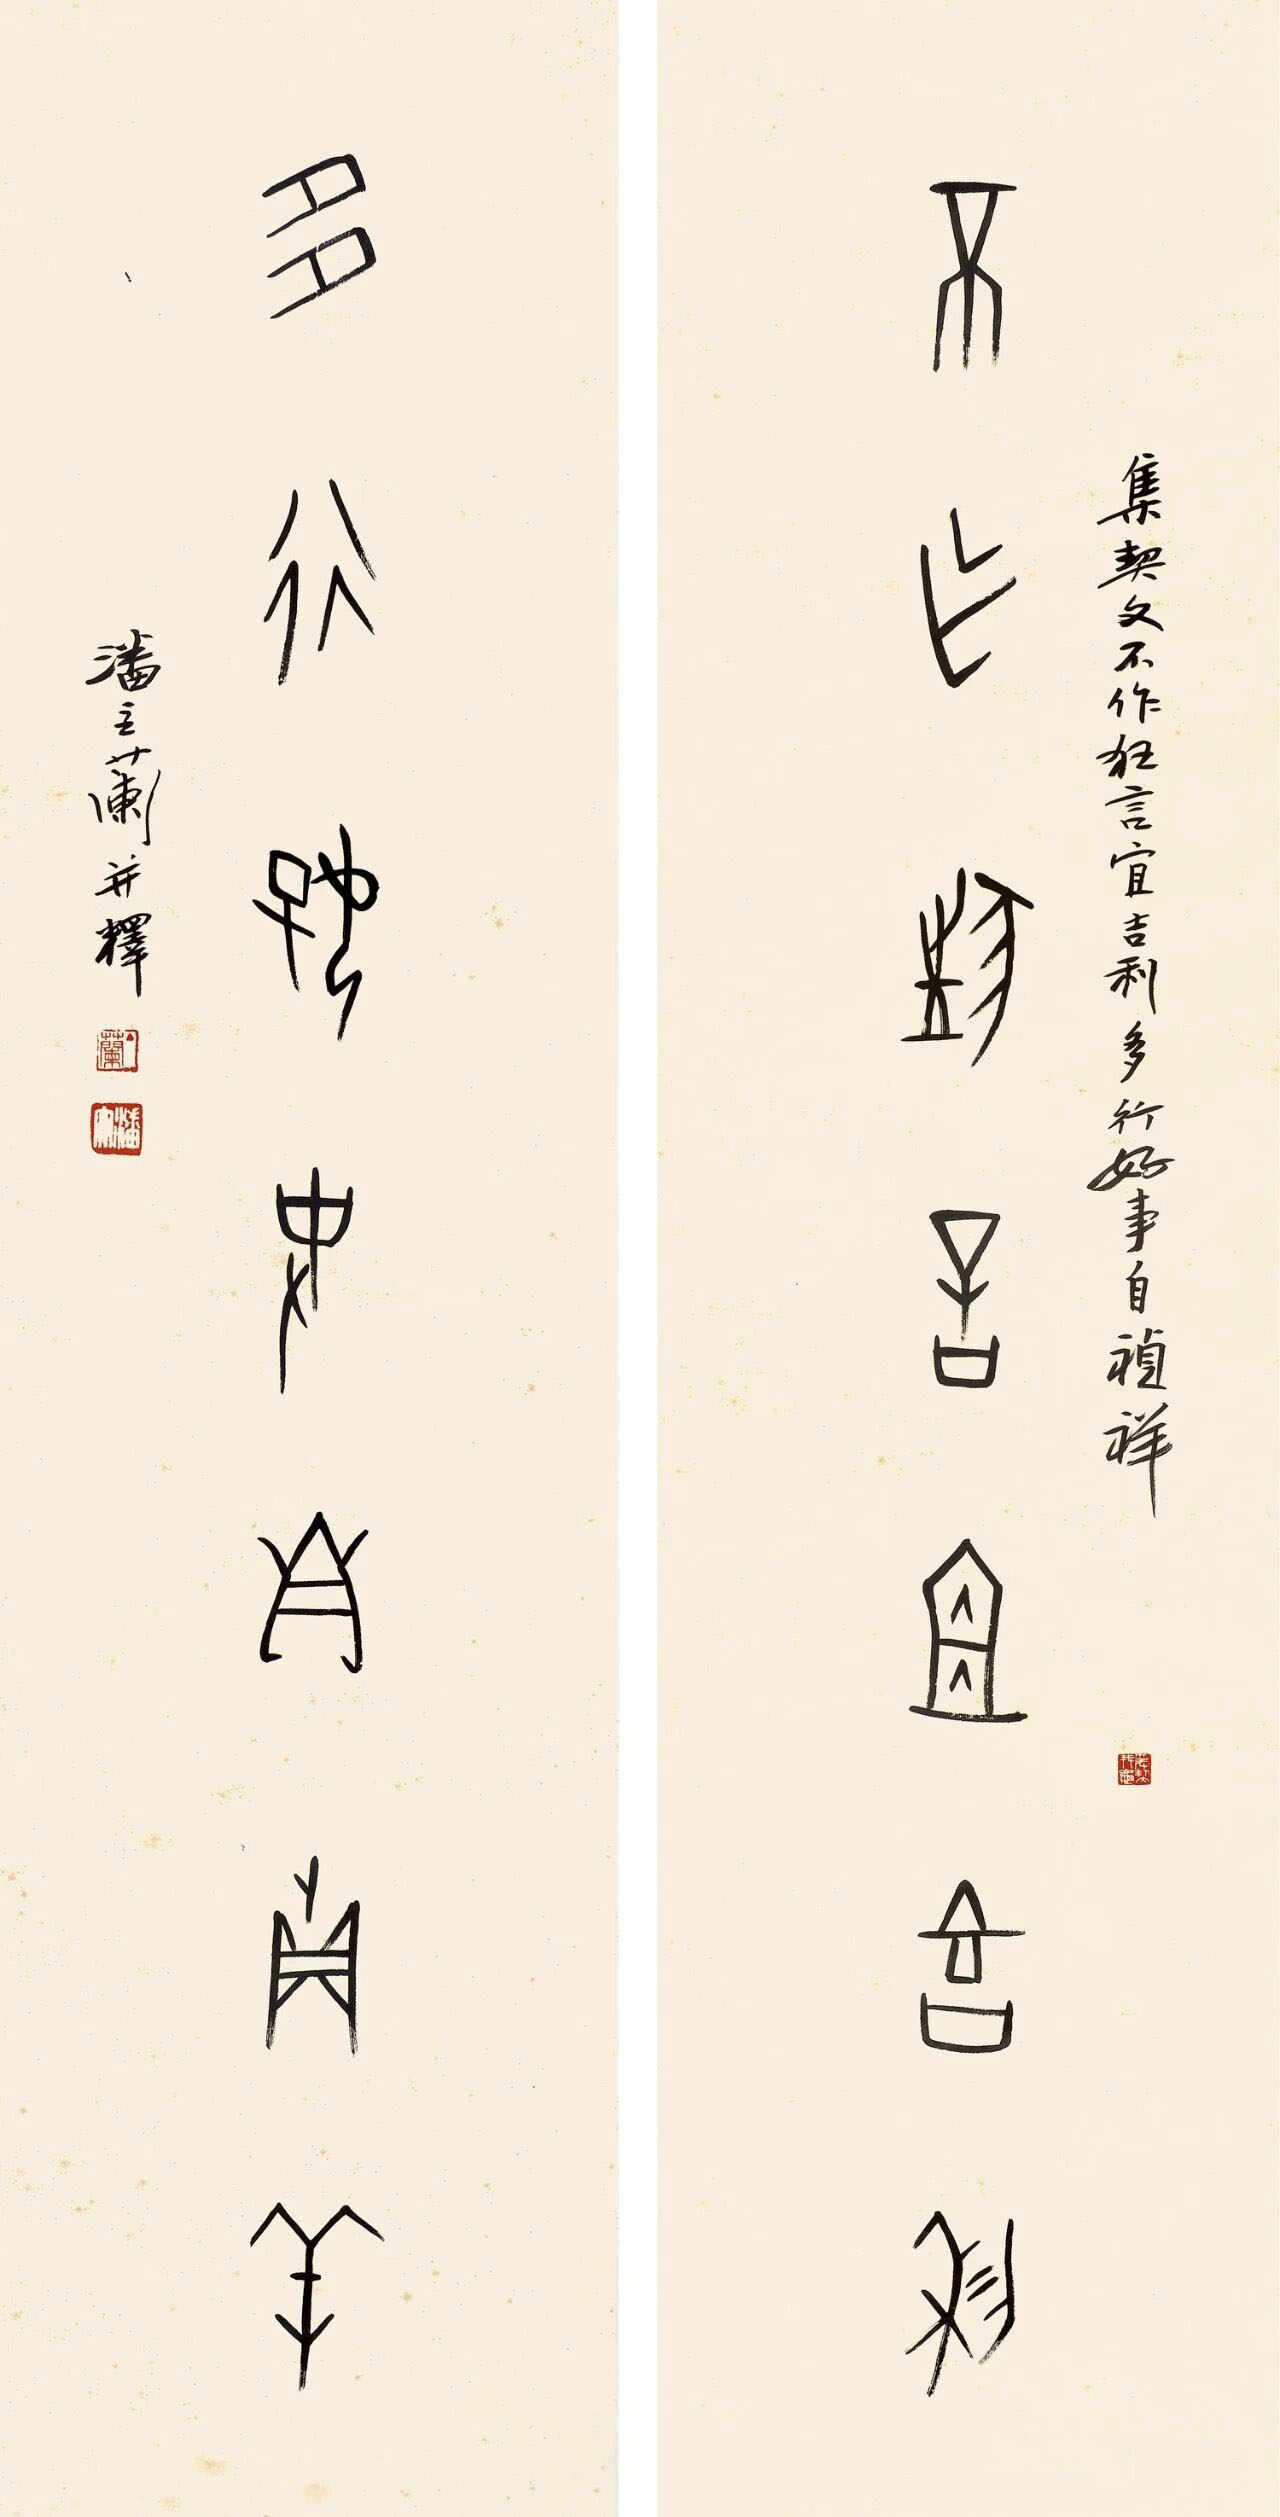 集契文不作狂言宜吉利多行好事自祯祥
不乍狂言宜吉利
多行好事自贞羊
潘主蘭并釋